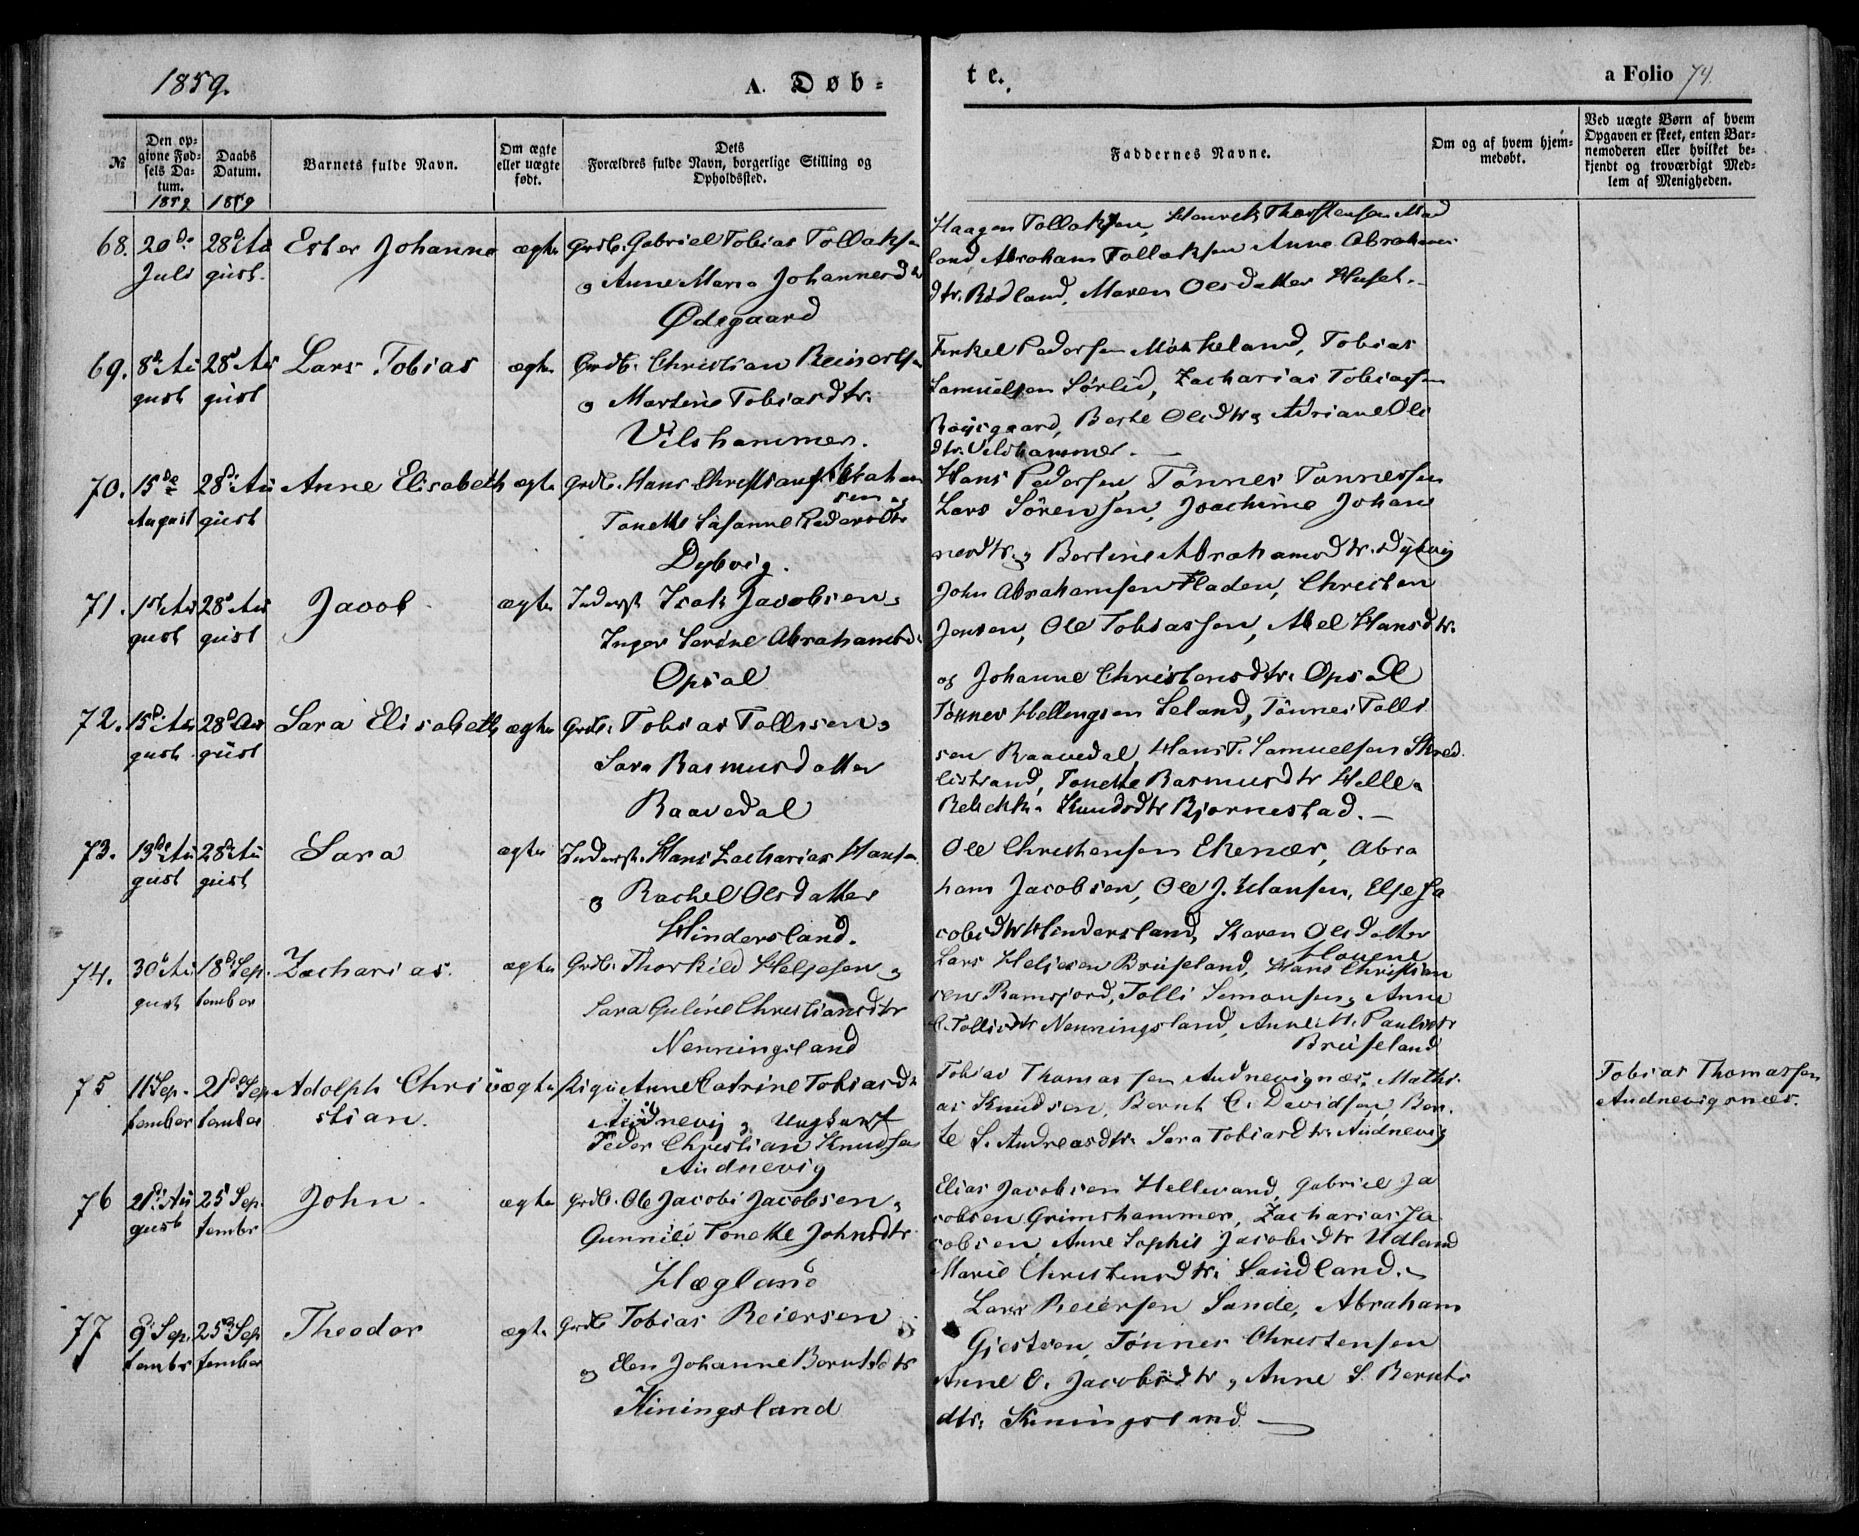 1859.
A. Døb-
te.
a Folio 74.
№
Den op-
givne Fød-
sels Da-
tum.
1859
Daabs
Datum.
1859
Barnets fulde Navn.
Om ægte
eller uægte
født.
Dets
Forældres fulde Navn, borgerlige Stilling og
Opholdssted.
Faddernes Navne.
Om og af hvem hjem-
medøbt.
Ved uægte Børn af hvem
Opgaven er skeet, enten Bar-
nemoderen eller hvilket be-
kjendt og troværdigt Med-
lem af Menigheden.
68.
20de
Juli
28d Au
gust.
Ester Johanne
ægte
Grdb. Gabriel Tobias Tollaksen
og Anne Maria Johannesdtr
Ødegaard
Haagen Tollaksen, Henrek Thorstensen
land, Abraham Tollaksen Anne Abrahams
dtr. Rødland, Maren Olsdatter Huset.
69.
8d Au
gust
28d Au
gust
Lars Tobias
ægte
Grdb. Christian Reinertsen
og Martine Tobiasdtr.
Vilshammer.
Terkel Pedersen Mønkeland, Tobias
Samuelsen Sørlid, Zacharias Tobiassen
Røisgaard, Berte Olsdtr og Adriane Ols
dtr. Vilshammer. —
70.
15de
August
28d Au
gust
Anne Elisabeth
ægte
Grdb. Hans Christian Abraham
sen og
Tonette Susanne Pedersdtr
Dybvig.
Hans Pedersen Tønnes Tønnessen
Lars Sørensen, Joachime Johan
nesdtr. og Bertine Abrahamsdtr. Dybvig
71.
1st Au
gust
28d Au
gust
Jacob
ægte
Inderst Isak Jacobsen og
Inger Serine Abrahamsd.
Opsal
John Abrahamsen Fladen, Christen
Jensen, Ole Tobiassen, Abel Hansdtr.
og Johanne Christensdtr. Opsal
72.
15d Au
gust
28d Au
gust
Sara Elisabeth
ægte
Grdb. Tobias Tollisen og
Sara Rasmusdatter
Raavedal
Tønnes Hellengsen Seland, Tønnes Tolli
sen Raavedal, Hans T. Samuelsen Skred
listrand, Tonette Rasmusdtr Helle
Rebekka Knudsdtr Bjørnestad. —
73.
13de Au
gust
28d Au
gust
Sara
ægte
Inderst. Hans Zacharias Hansen
og Rachel Olsdatter
Hindersland.
Ole Christensen Ekenæs, Abra
ham Jacobsen, Ole J. Hansen, Else Ja
cobsdtr Hindersland, Karen Olsdatter
Houene
74.
30d Au
gust
18d Sep.
tember
Zacharias.
ægte
Grdb. Thorkild Heljesen og
Sara Guline Christiansdtr
Nenningsland
Lars Heljesen Bruseland, Hans Christian
sen Ramsfjord, Tolli Simonsen, Anne
C. Tollisdtr Nenningsland, Anne M. Paulsdtr
Bruseland
75
11 Sep-
tember
21d Sep
tember
Adolph Chri
stian.
uægte
Pige Anne Catrine Tobiasdtr
Audnevig og Ungkarl
Peder Christian Knudsen
Audnevig
Tobias Thomassen Audnevignæs, Mathi-
as Knudsen, Bernt C. Davidsen, Ber-
te S. Andreasdtr. Sara Tobiasdtr. Audnevig
Tobias Thomassen
Audnevigsnæs.
76
21d Au
gust
25 Sep.
tembr
John.
ægte
Grdb. Ole Jacobi Jacobsen og
Gunnild Tonette Johnsdtr
Hægland
Elias Jacobsen Hellevand, Gabriel Ja
cobsen Grimshammer, Zacharias Ja
cobsen, Anne Sophie Jacobsdtr Udland
Marie Christensdtr. Saudland.
77
9d Sep.
tembr
25d Sep
tember
Theodor
ægte
Grdb Tobias Reiersen
og Elen Johanne Berntsdtr
Kiningsland
Lars Reiersen Sande, Abraham
Gjertsen, Tønnes Christensen
Anne O. Jacobsdtr, Anne S. Bernts
dtr. Kiningsland —